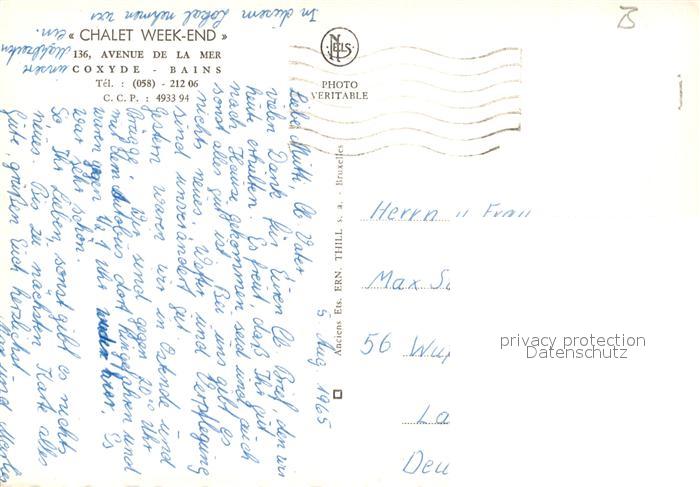 In diesem Lokal nehmen wir
unsere Mahlzeiten
ein.
« CHALET WEEK-END »
136, AVENUE DE LA MER
COXYDE - BAINS
Tél. : (058) - 212 06
C. C. P. : 4933 94
NELS
PHOTO
VERITABLE
Liebe Mutti, lb. Vater,
vielen Dank für Euren lb. Brief, den wir
heute erhielten. Es freut daß Ihr gut
nach Hause gekommen seid und auch
sonst alles gut ist. Bei uns gibt es
nichts neues, Wetter und Verpflegung
sind unverändert gut.
Gestern waren wir in Ostende und
Brügge. Wir sind gegen Uhr
mit dem Autobus dort hingefahren und
waren gegen Uhr wieder hier. Es
war sehr schön.
So, Ihr Lieben, sonst gibt es nichts
neues. Bis zur nächsten Karte alles
Gute, grüßen Euch herzlichst
und
5 Aug. 1965
Anciens Ets. ERN. THILL s. a. - Bruxelles
Herrn u Frau
Max
56 Wup
La
Deu
privacy protection
Datenschutz